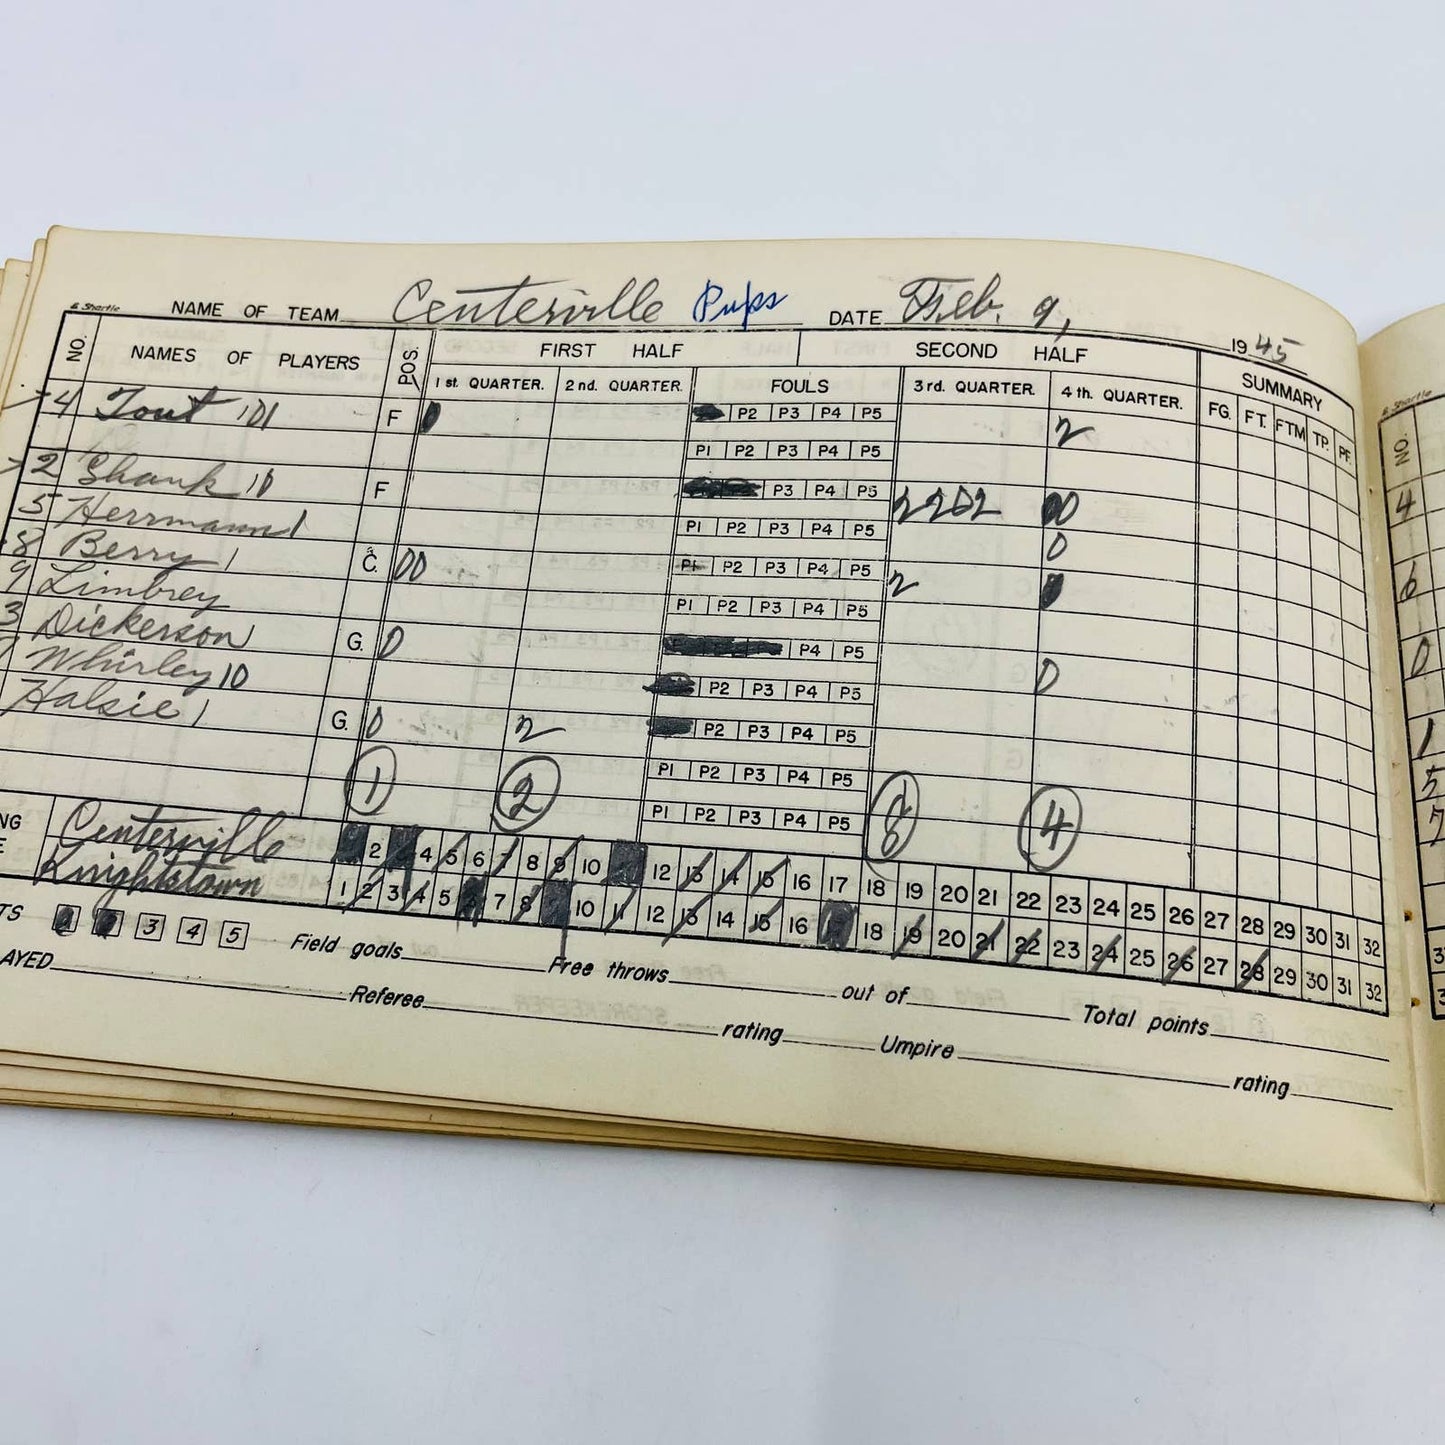 & Shartle NAME OF TEAM Centerville Pups DATE Feb. 9, 1945
NO. NAMES OF PLAYERS POS. FIRST HALF SECOND HALF SUMMARY
1 st. QUARTER. 2 nd. QUARTER. FOULS 3 rd. QUARTER. 4 th. QUARTER. FG. FT. FTM TP. PF.
4 Tout 101 F P2 P3 P4 P5 2
P1 P2 P3 P4 P5
2 Shank 10 F P3 P4 P5 2 2 0 2 0
5 Herrmann 1 P1 P2 P3 P4 P5 0
8 Berry 1 C. 0 0 P1 P2 P3 P4 P5 2
9 Limbrey P1 P2 P3 P4 P5
3 Dickerson 1 G. 0 P4 P5
7 Whirley 10 P2 P3 P4 P5 0
Halsie 1 G. 0 2 P2 P3 P4 P5
1 2 P1 P2 P3 P4 P5 6 4
P1 P2 P3 P4 P5
Centerville 2 4 5 6 7 8 9 10 12 13 14 15 16 17 18 19 20 21 22 23 24 25 26 27 28 29 30 31 32
Knightstown 1 2 3 4 5 6 7 8 10 11 12 13 14 15 16 18 19 20 21 22 23 24 25 26 27 28 29 30 31 32
TS 3 4 5 Field goals Free throws out of Total points
AYED Referee rating Umpire rating
& Shartle
NO.
4
6
0
1
5
7